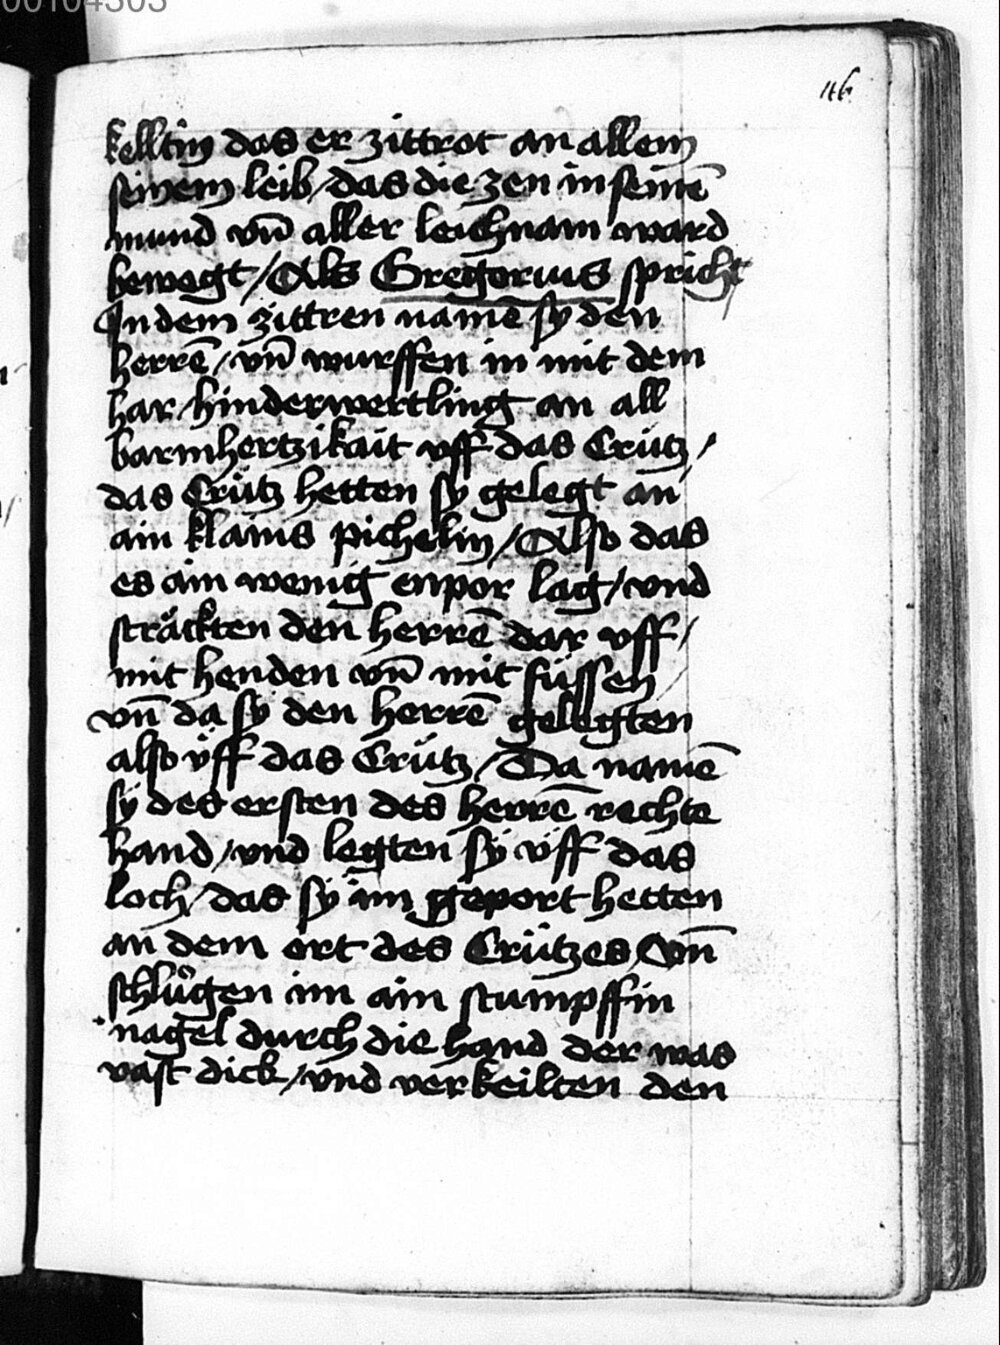 00104303
116
kelltin das er zittrot an allem
seinem leib / das die zen in seinē
mund vn̄ aller leichnam ward
bewegt / Als Gregorius spricht /
In dem zittren namē sy den
herrē / vn̄ wurffen in mit dem
har hinderwertling an all
barmhertzikait vff das Crütz /
das Crütz hetten sy gelegt an
ain klains pichelin / Also das
es ain wenig enpor lag / vnd
sträckten den herrē dar vff /
mit henden vn̄ mit füssen /
vn̄ da sy den herrē gelegten
also vff das Crütz / Da namē
sy des ersten des herrē rechte
hand / vnd legten sy vff das
loch / das sy im geport hetten
an dem ort des Crützes Vn̄
schlůgen im ain stumpffin
nagel durch die hand der was
vast dick / vnd verkeilten den